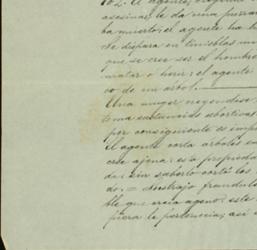 162. El agente, creyendo
asesinar, le da una puna
ha muerto; el agente ha h
he dispara en tinieblas un
que se cree ser el hombre
matar ó herir; el agente
co de un arbol.
Una muger creyendose
toma sustancias abortivas
por consiguiente es imp
El agente corta arboles en
cree agena; esta propiedad
de; sin saberlo cortó los
do. = destrajo fraudule
ble que creia ageno; este
fuera le pertenecia, así